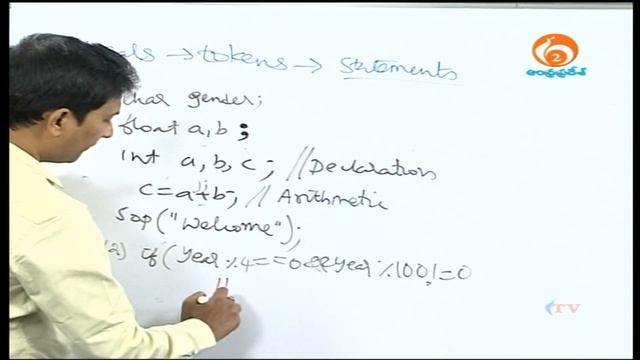 → tokens → statements
char gender;
float a, b ;
int a, b, c ; // Declaration
c = a + b ; // Arithmetic
Sop("Welcome");
2) if (year % 4 = = 0 && year % 100 ! = 0
2
ఆంధ్రప్రదేశ్
TV